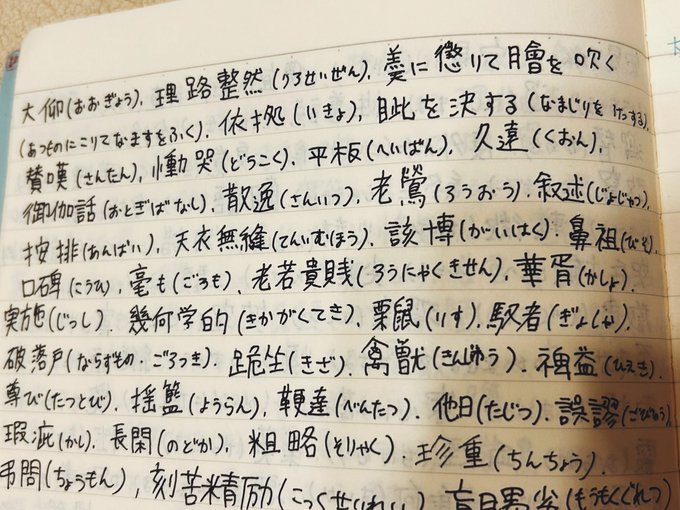 大仰(おおぎょう)、理路整然(りろせいぜん)、羹に懲りて膾を吹く
(あつものにこりてなますをふく)、依拠(いきょ)、眦を決する(なまじりをけっする)、
賛嘆(さんたん)、慟哭(どうこく)、平板(へいばん)、久遠(くおん)、
御伽話(おとぎばなし)、散逸(さんいつ)、老鶯(ろうおう)、叙述(じょじゅつ)、
按排(あんばい)、天衣無縫(てんいむほう)、該博(がいはく)、鼻祖(びそ)、
口碑(こうひ)、毫も(ごうも)、老若貴賎(ろうにゃくきせん)、華胥(かしょ)、
実施(じっし)、幾何学的(きかがくてき)、栗鼠(りす)、馭者(ぎょしゃ)、
破落戸(ならずもの・ごろつき)、跪坐(きざ)、禽獣(きんじゅう)、裨益(ひえき)、
尊び(たっとび)、揺籃(ようらん)、鞭撻(べんたつ)、他日(たじつ)、誤謬(ごびゅう)、
瑕疵(かし)、長閑(のどか)、粗略(そりゃく)、珍重(ちんちょう)
弔問(ちょうもん)、刻苦精励(こっくせいれい)、盲目愚劣(もうもくぐれつ)